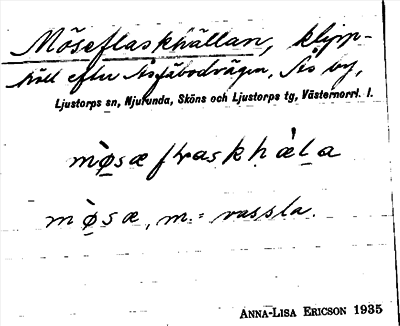 Möseflaskhällan, klipp-
häll efter Åsfäbodvägen, Ås by,
Ljustorps sn, Njurunda, Sköns och Ljustorps tg, Västernorrl. l.
mò̤sæ flaskhæ̀l̤a
mò̤sæ, m. = vassla.
ANNA-LISA ERICSON 1935